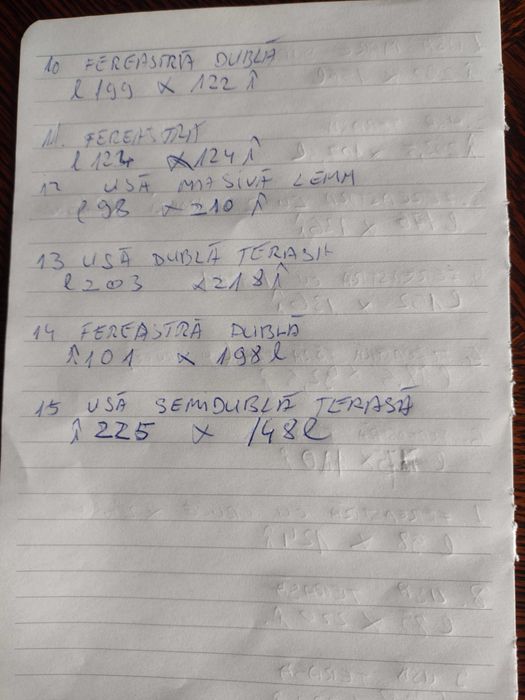 10 FEREASTRĂ DUBLĂ
l 199 x 122 Î
11. FEREASTRĂ
l 124 x 124 Î
12 USĂ MASIVĂ LEMN
l 98 x 210 Î
13 USĂ DUBLĂ TERASĂ
l 203 x 218 Î
14 FEREASTRĂ DUBLĂ
Î 101 x 198 l
15 USĂ SEMIDUBLĂ TERASĂ
Î 225 x 148 l